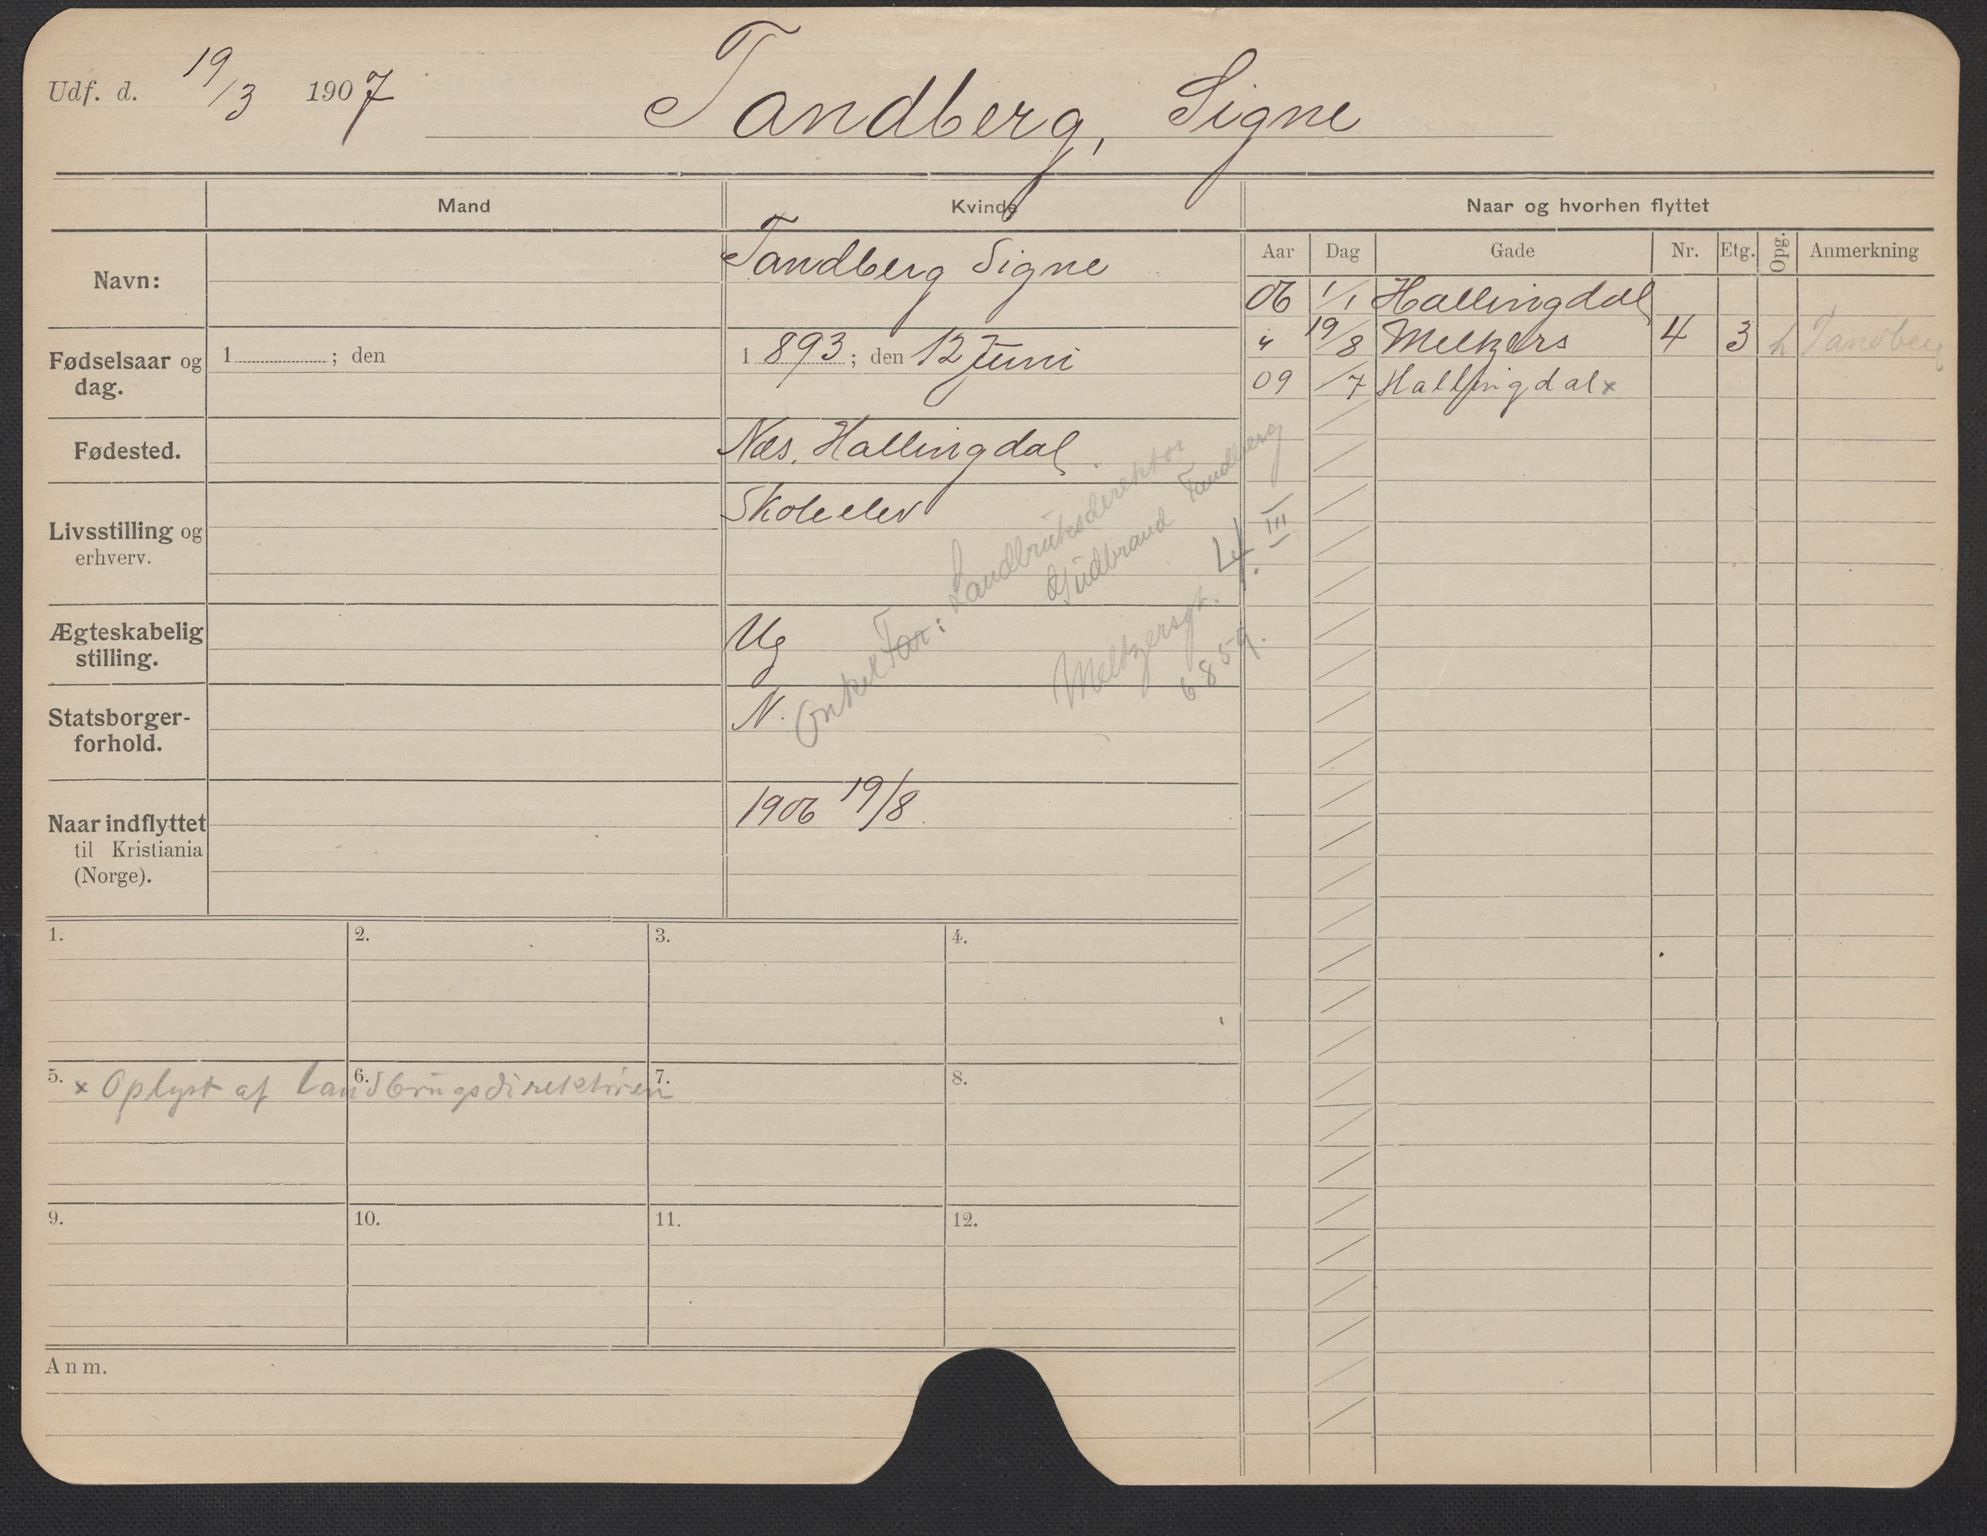 Udf. d. 19/3 1907 Tandberg, Signe
Mand Kvinde Naar og hvorhen flyttet
Aar Dag Gade Nr. Etg. Opg. Anmerkning
Navn: Tandberg Signe
06 1/1 Hallingdal
" 19/8 Meltzers 4 3 h Tandberg
09 /7 Hallingdal x
Fødselsaar og dag. 1 ; den 1 893 ; den 12 Juni
Fødested. Næs, Hallingdal.
Livsstilling og erhverv. Skoleelev
Ægteskabelig stilling. Ug
Statsborger-
forhold. N.
Onkel Far: Landbruksdirektør
Gudbrand Tandberg
Meltzersgt. 4. III
6859.
Naar indflyttet
til Kristiania
(Norge). 1906 19/8
1. 2. 3. 4.
5. 6. 7. 8.
x Oplyst af Landbrugsdirektøren
9. 10. 11. 12.
Anm.